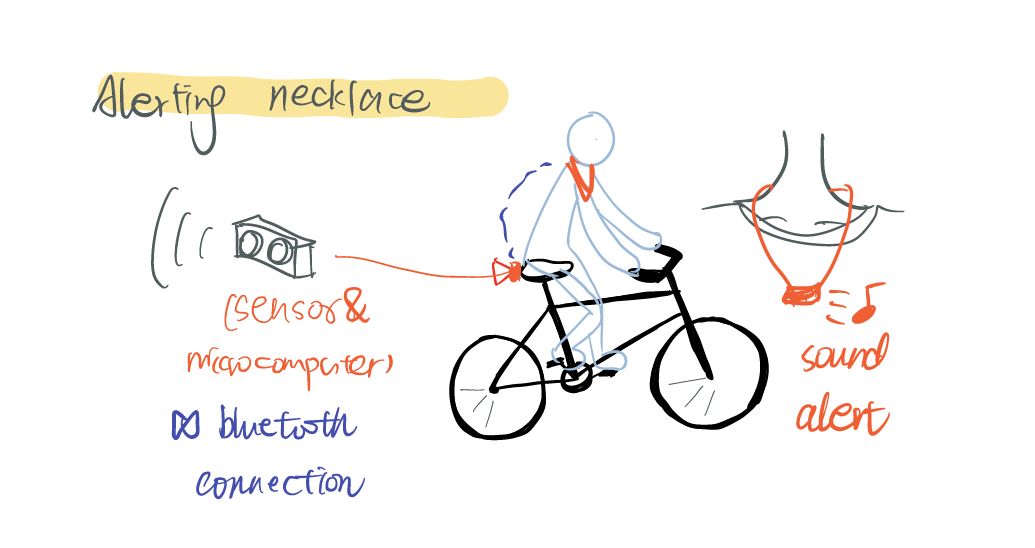 Alerting necklace
(sensor &
microcomputer)
bluetooth
connection
sound
alert